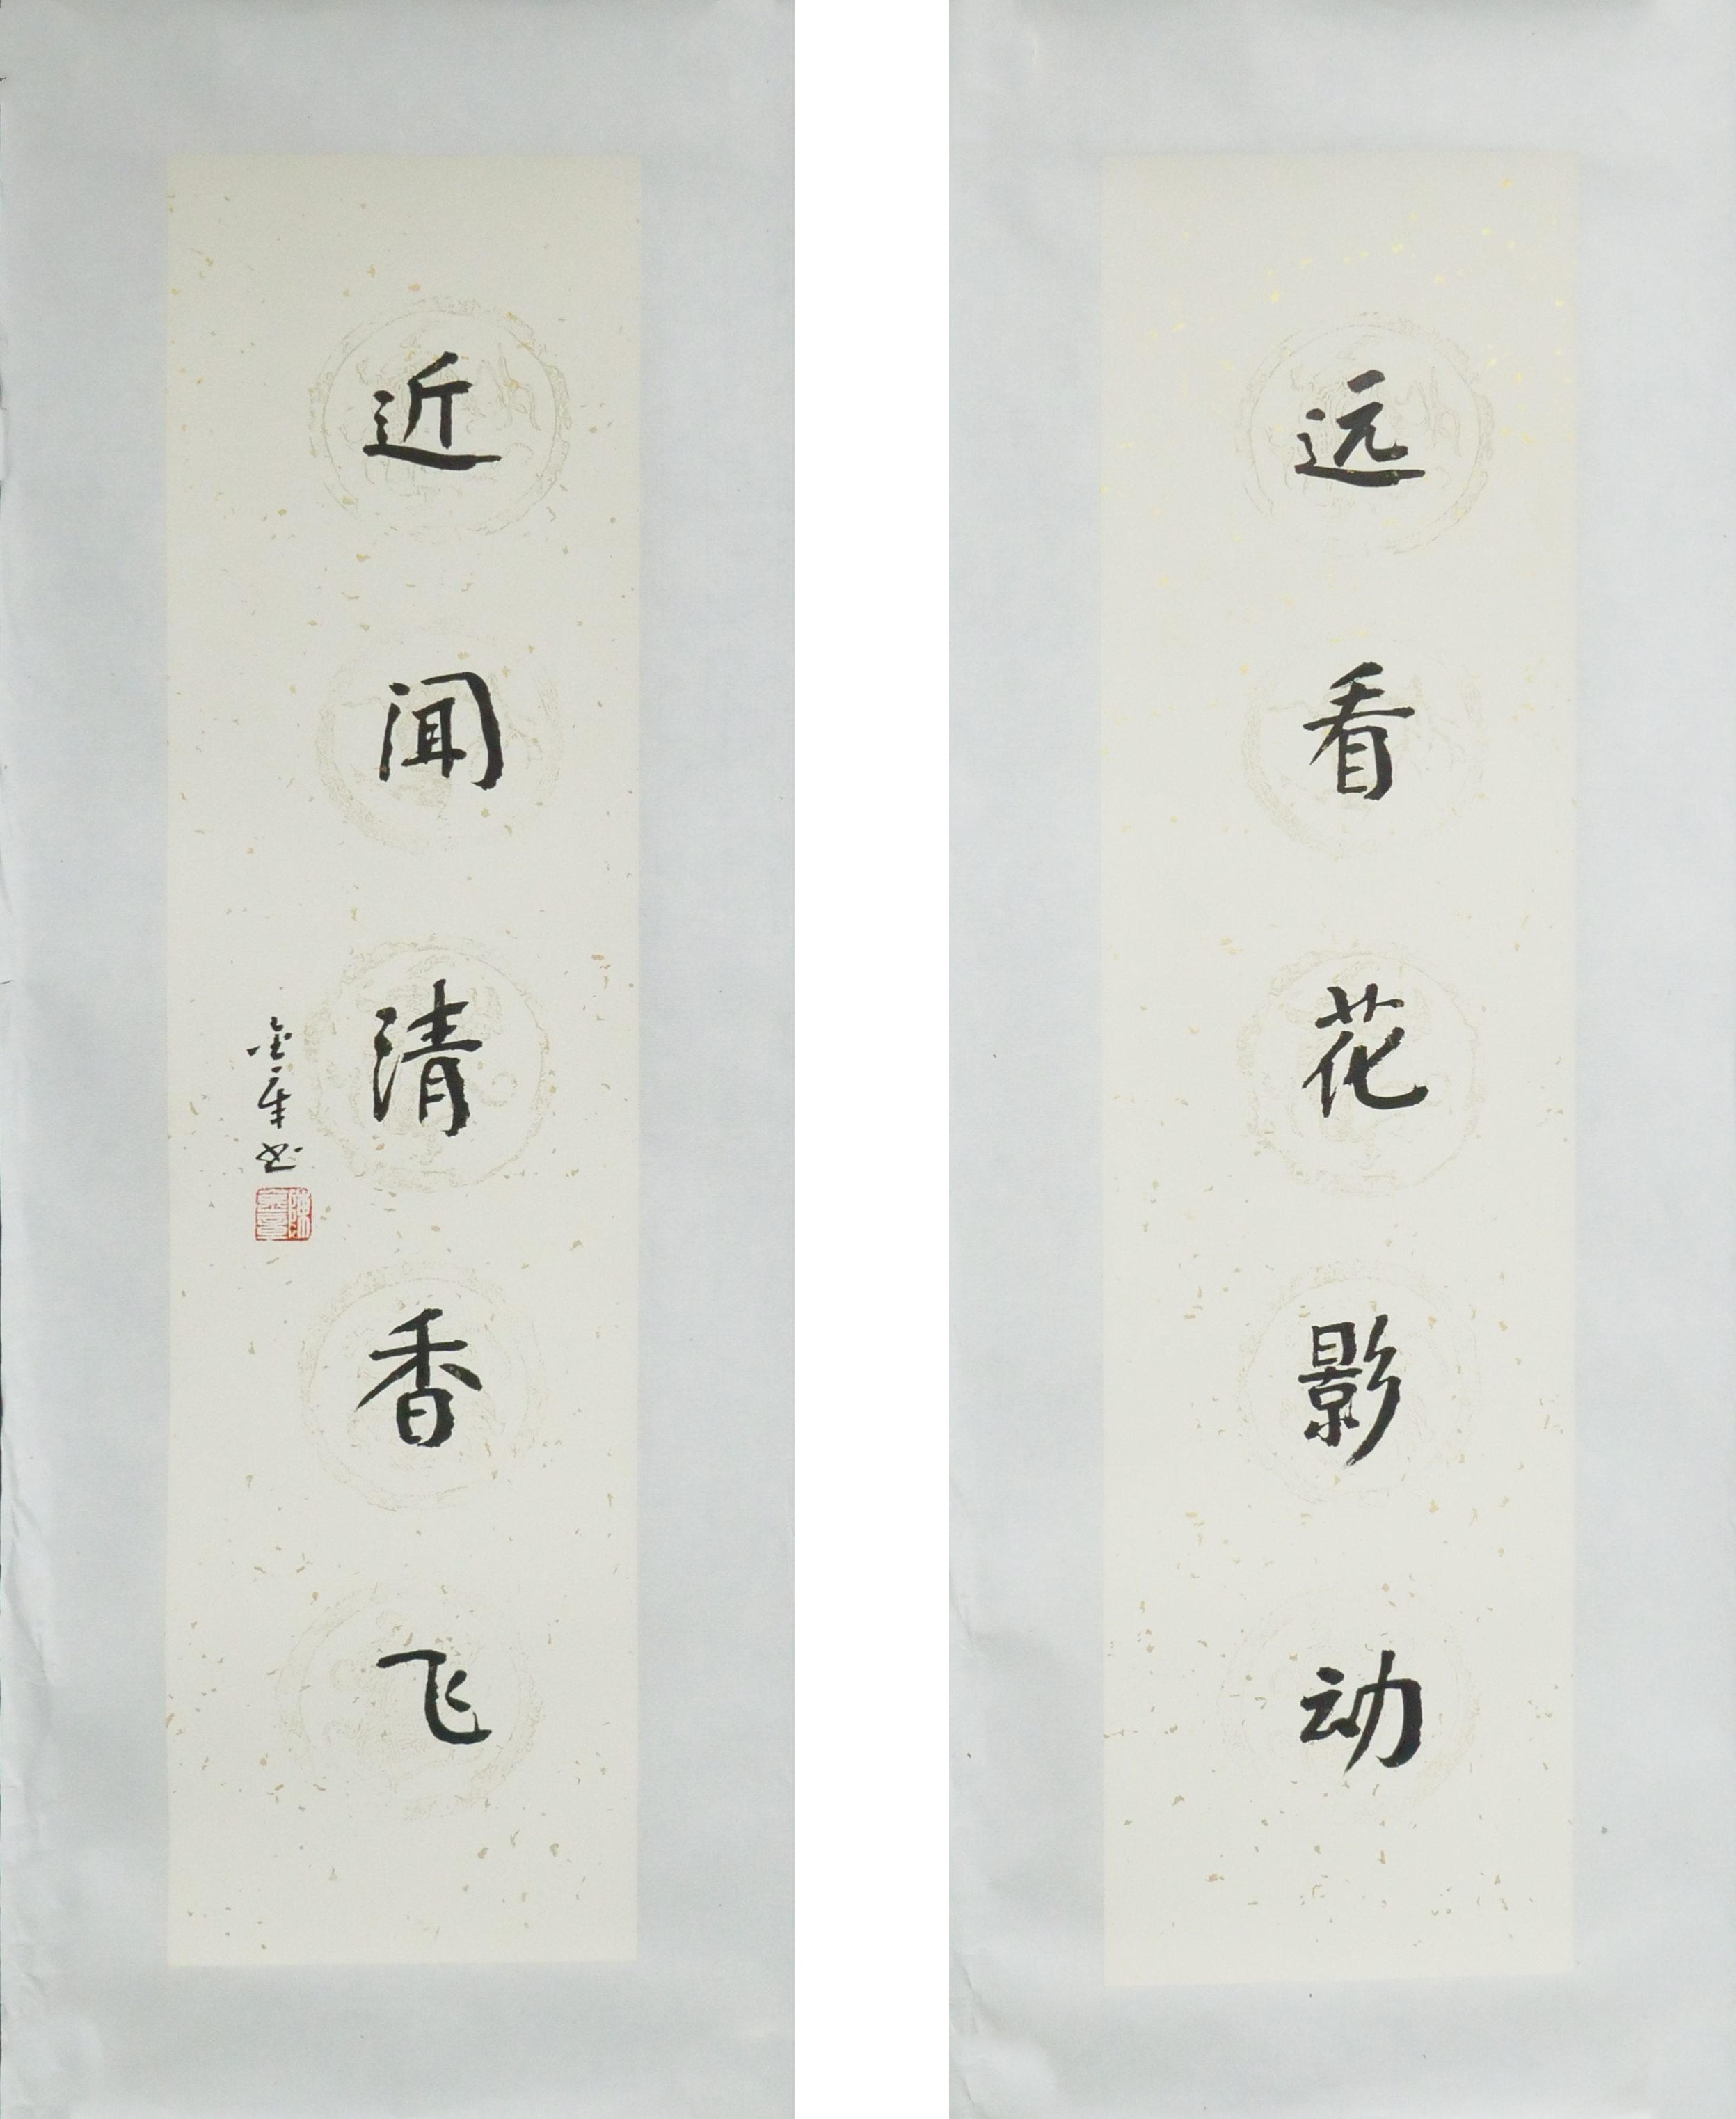 远看花影动
近闻清香飞
金章书